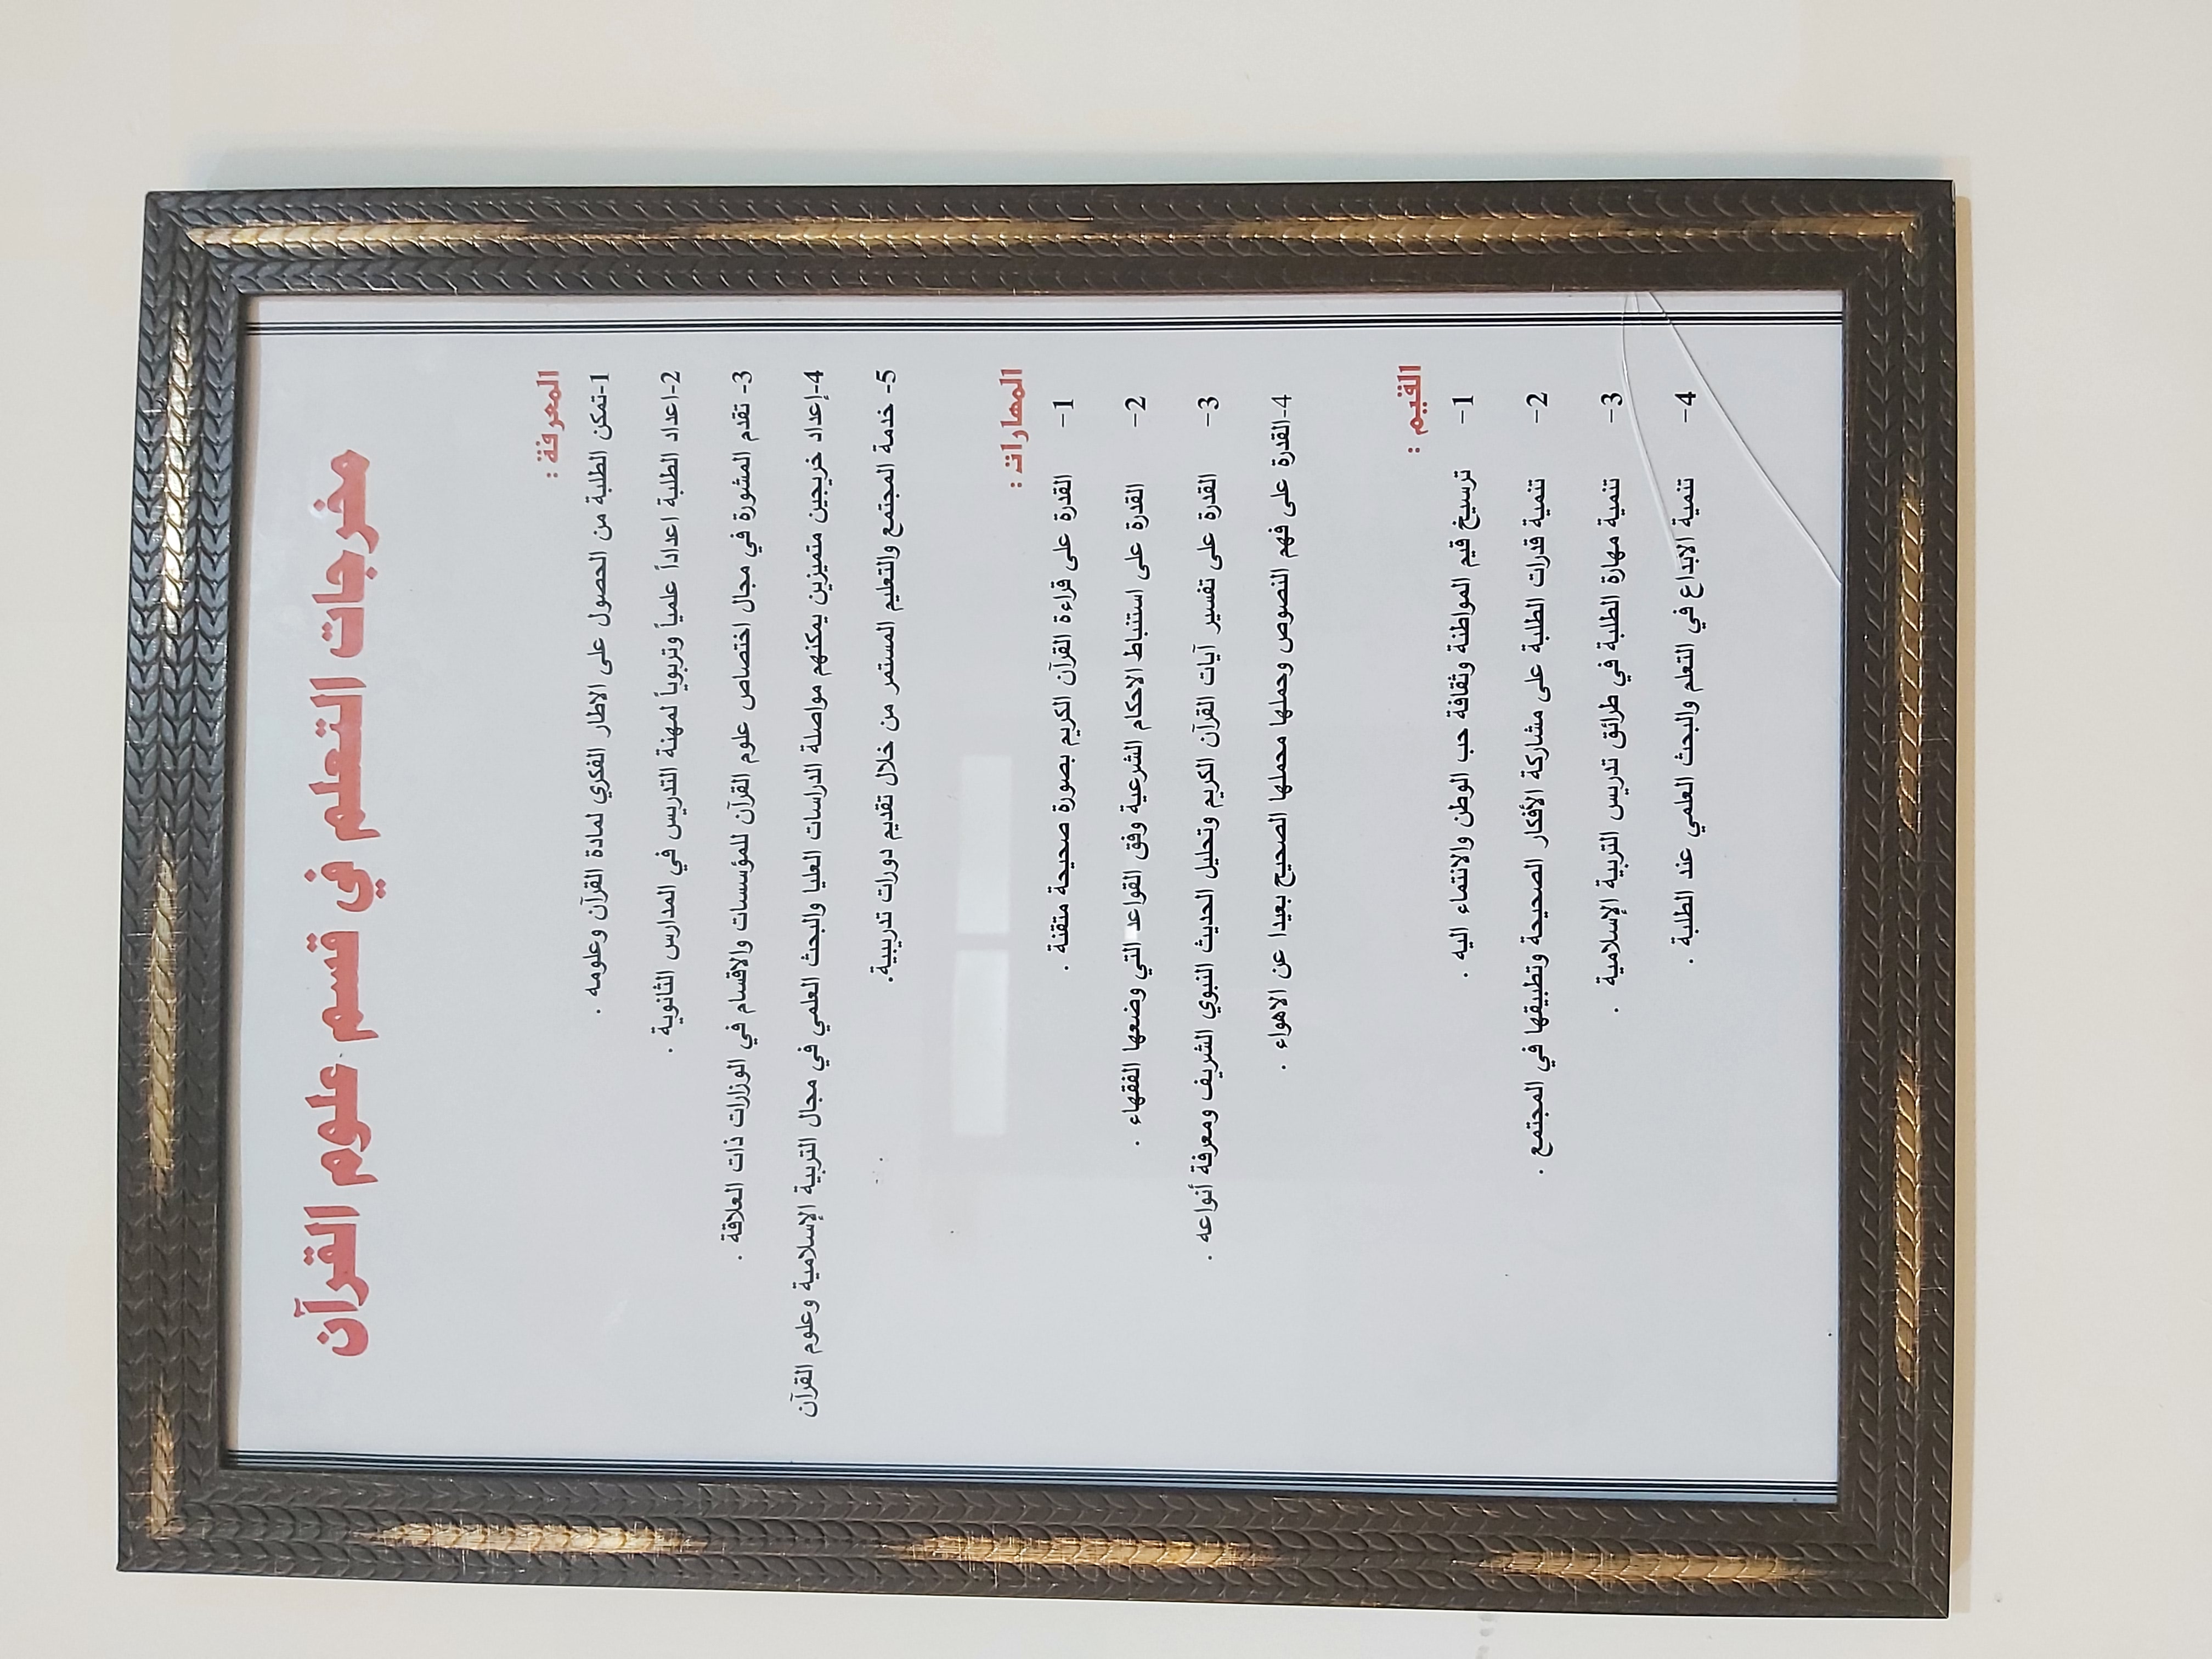 مخرجات التعلم في قسم علوم القرآن
المعرفة :
1-تمكن الطلبة من الحصول على الاطار الفكري لمادة القرآن وعلومه .
2-اعداد الطلبة اعداداً علمياً وتربوياً لمهنة التدريس في المدارس الثانوية .
3- تقدم المشورة في مجال اختصاص علوم القرآن للمؤسسات والاقسام في الوزارات ذات العلاقة .
4-إعداد خريجين متميزين يمكنهم مواصلة الدراسات العليا والبحث العلمي في مجال التربية الإسلامية وعلوم القرآن
5- خدمة المجتمع والتعليم المستمر من خلال تقديم دورات تدريبية.
المهارات :
1- القدرة على قراءة القرآن الكريم بصورة صحيحة متقنة .
2- القدرة على استنباط الاحكام الشرعية وفق القواعد التي وضعها الفقهاء .
3- القدرة على تفسير آيات القرآن الكريم وتحليل الحديث النبوي الشريف ومعرفة أنواعه .
4-القدرة على فهم النصوص وحملها محملها الصحيح بعيدا عن الاهواء .
القيم :
1- ترسيخ قيم المواطنة وثقافة حب الوطن والانتماء اليه .
2- تنمية قدرات الطلبة على مشاركة الأفكار الصحيحة وتطبيقها في المجتمع .
3- تنمية مهارة الطلبة في طرائق تدريس التربية الإسلامية .
4- تنمية الابداع في التعلم والبحث العلمي عند الطلبة .